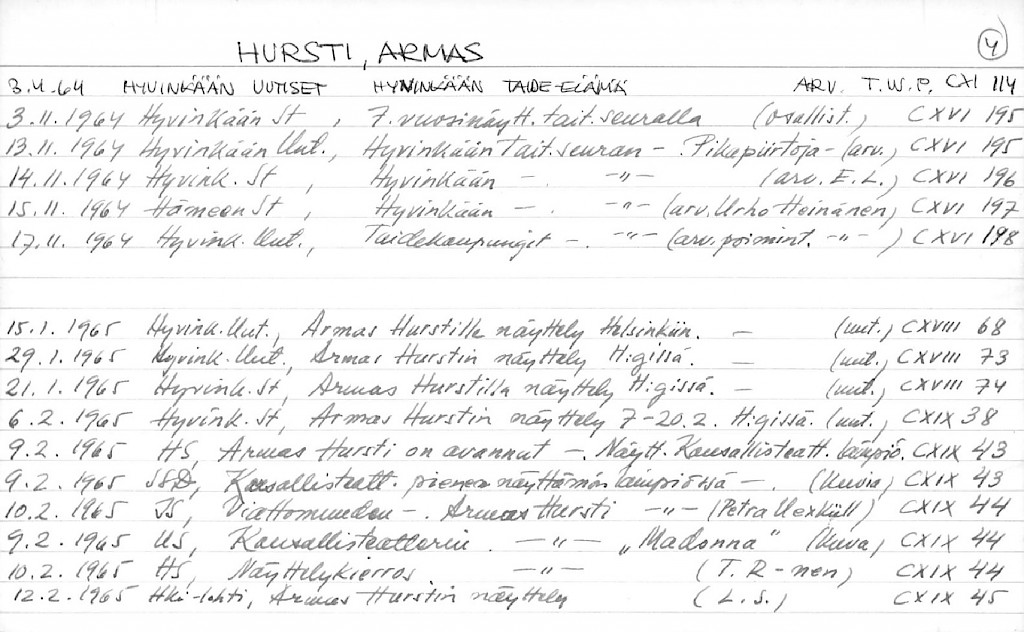 HURSTI, ARMAS 4
3.4.64 HYVINKÄÄN UUTISET HYVINKÄÄN TAIDE-ELÄMÄ ARV. T.W.P. CXI 114
3.11.1964 Hyvinkään St, 7. vuosinäytt. tait.seuralla (osallist.) CXVI 195
13.11.1964 Hyvinkään Uut., Hyvinkään Tait.seuran -. Pikapiirtoja - (arv.) CXVI 195
14.11.1964 Hyvink. St, Hyvinkään -. -"- (arv. E.L.) CXVI 196
15.11.1964 Hämeen St, Hyvinkään -. -"- (arv. Urho Heinänen) CXVI 197
17.11.1964 Hyvink. Uut., Taidekaupungit -. -"- (arv. poimint. -"-) CXVI 198
15.1.1965 Hyvink. Uut., Armas Hurstilla näyttely Helsinkiin. - (uut.) CXVIII 68
29.1.1965 Hyvink. Uut., Armas Hurstin näyttely H:gissä. - (uut.) CXVIII 73
21.1.1965 Hyvink. St, Armas Hurstilla näyttely H:gissä. - (uut.) CXVIII 74
6.2.1965 Hyvink. St, Armas Hurstin näyttely 7-20.2. H:gissä. (uut.) CXIX 38
9.2.1965 HS, Armas Hursti on avannut -. Näytt. Kansallisteatt. lämpiö. CXIX 43
9.2.1965 SSD, Kansallisteatt. pienen näyttämön lämpiössä -. (Kuvia) CXIX 43
10.2.1965 IS, Viattomuuden -. Armas Hursti -"- (Petra Uexküll) CXIX 44
9.2.1965 US, Kansallisteatterin. -"- "Madonna" (Kuva) CXIX 44
10.2.1965 HS, Näyttelykierros -"- (T. R-nen) CXIX 44
12.2.1965 Hki-lehti, Armas Hurstin näyttely (L.S.) CXIX 45